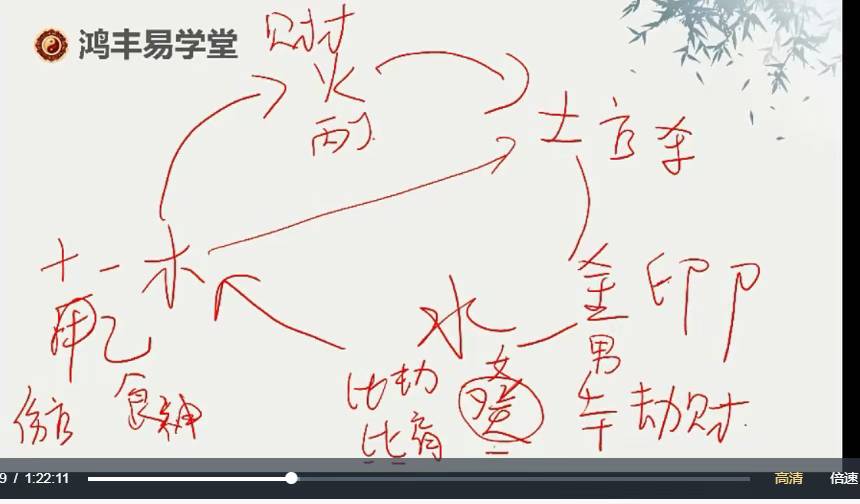 鸿丰易学堂
财才
火
丙丁
土 官 杀
十 一 木
甲乙
伤官 食神
水
金 印 卩
比劫
比肩
女
癸
男
劫财
9 / 1:22:11
高清 倍速